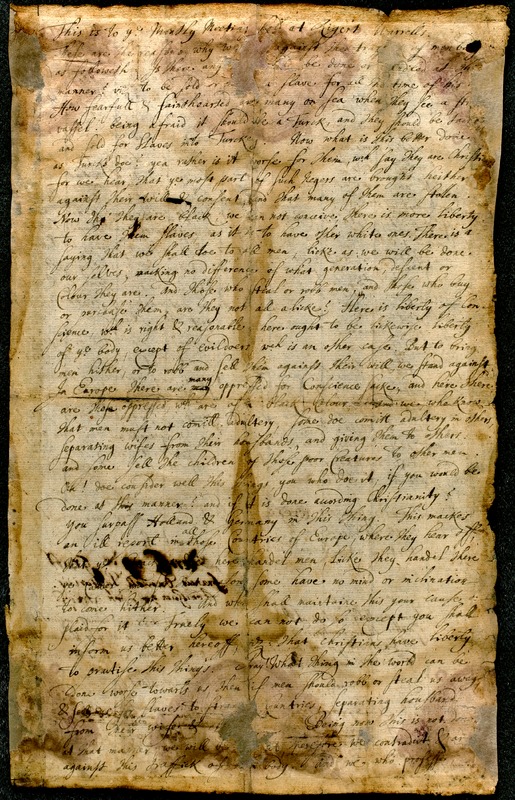 This is to ye Monthly Meeting held at Rigert Worrells.
These are the reasons why we are against the traffick of mens body
as followeth. Is there any that would be done or handled at this
manner? viz. to be sold or made a slave for all the time of his
How fearfull & fainthearted are many on sea when they see a str
vassel. being afraid it should be a Turck, and they should be tacken
and sold for slaves into Turckey. Now what is this better done
as Turcks doe? yea rather is it worse for them wch say they are Christi
for we hear, that ye most part of such Negers are brought heither
against their will & consent and that many of them are stollen.
Now tho they are black, we can not conceive there is more liberty
to have them slaves, as it is to have other white ones. There is a
saying that we shall doe to all men, licke as we will be done
our selves, macking no difference of what generation, descent or
Colour they are. and those who steal or robb men, and those who buy
or purchase them, are they not all alicke? Here is liberty off Con
science wch is right & reasonable, here ought to be likewise liberty
of ye body, except of evildoers, wch is an other case. But to bring
men hither, or to robb and sell them against their will, we stand against.
In Europe there are many oppressed for Conscience sacke, and here there
are those oppressed wh are of a black Colour. and we who know
that men must not comitt adultery some doe comitt adultery in others
separating wifes from their housbands, and giving them to others.
and some sell the children of those poor Creatures to other men.
Oh! doe consider well this things, you who doe it, if you would be
done at this manner? and if it is done according Christianity?
You surpass Holland & Germany in this thing. This mackes
an ill report in all those Countries of Europe, where they hear off
here handel men licke they handel there
some have no mind or inclination
to come hither. And who shall maintaine this your cause
plaid for it! Truely we can not do so except you shall
inform us better hereoff, viz. that christians have liberty
to practise this things. Pray! What thing in the word can be
done worse towarts us then if men should robb or steal us away
& sell us for slaves to strange Countries, separating housband
from their wife & children. Being now this is not done
at that manner we will be done at, therefore we contradict & are
against this traffick of men body. And we who profess